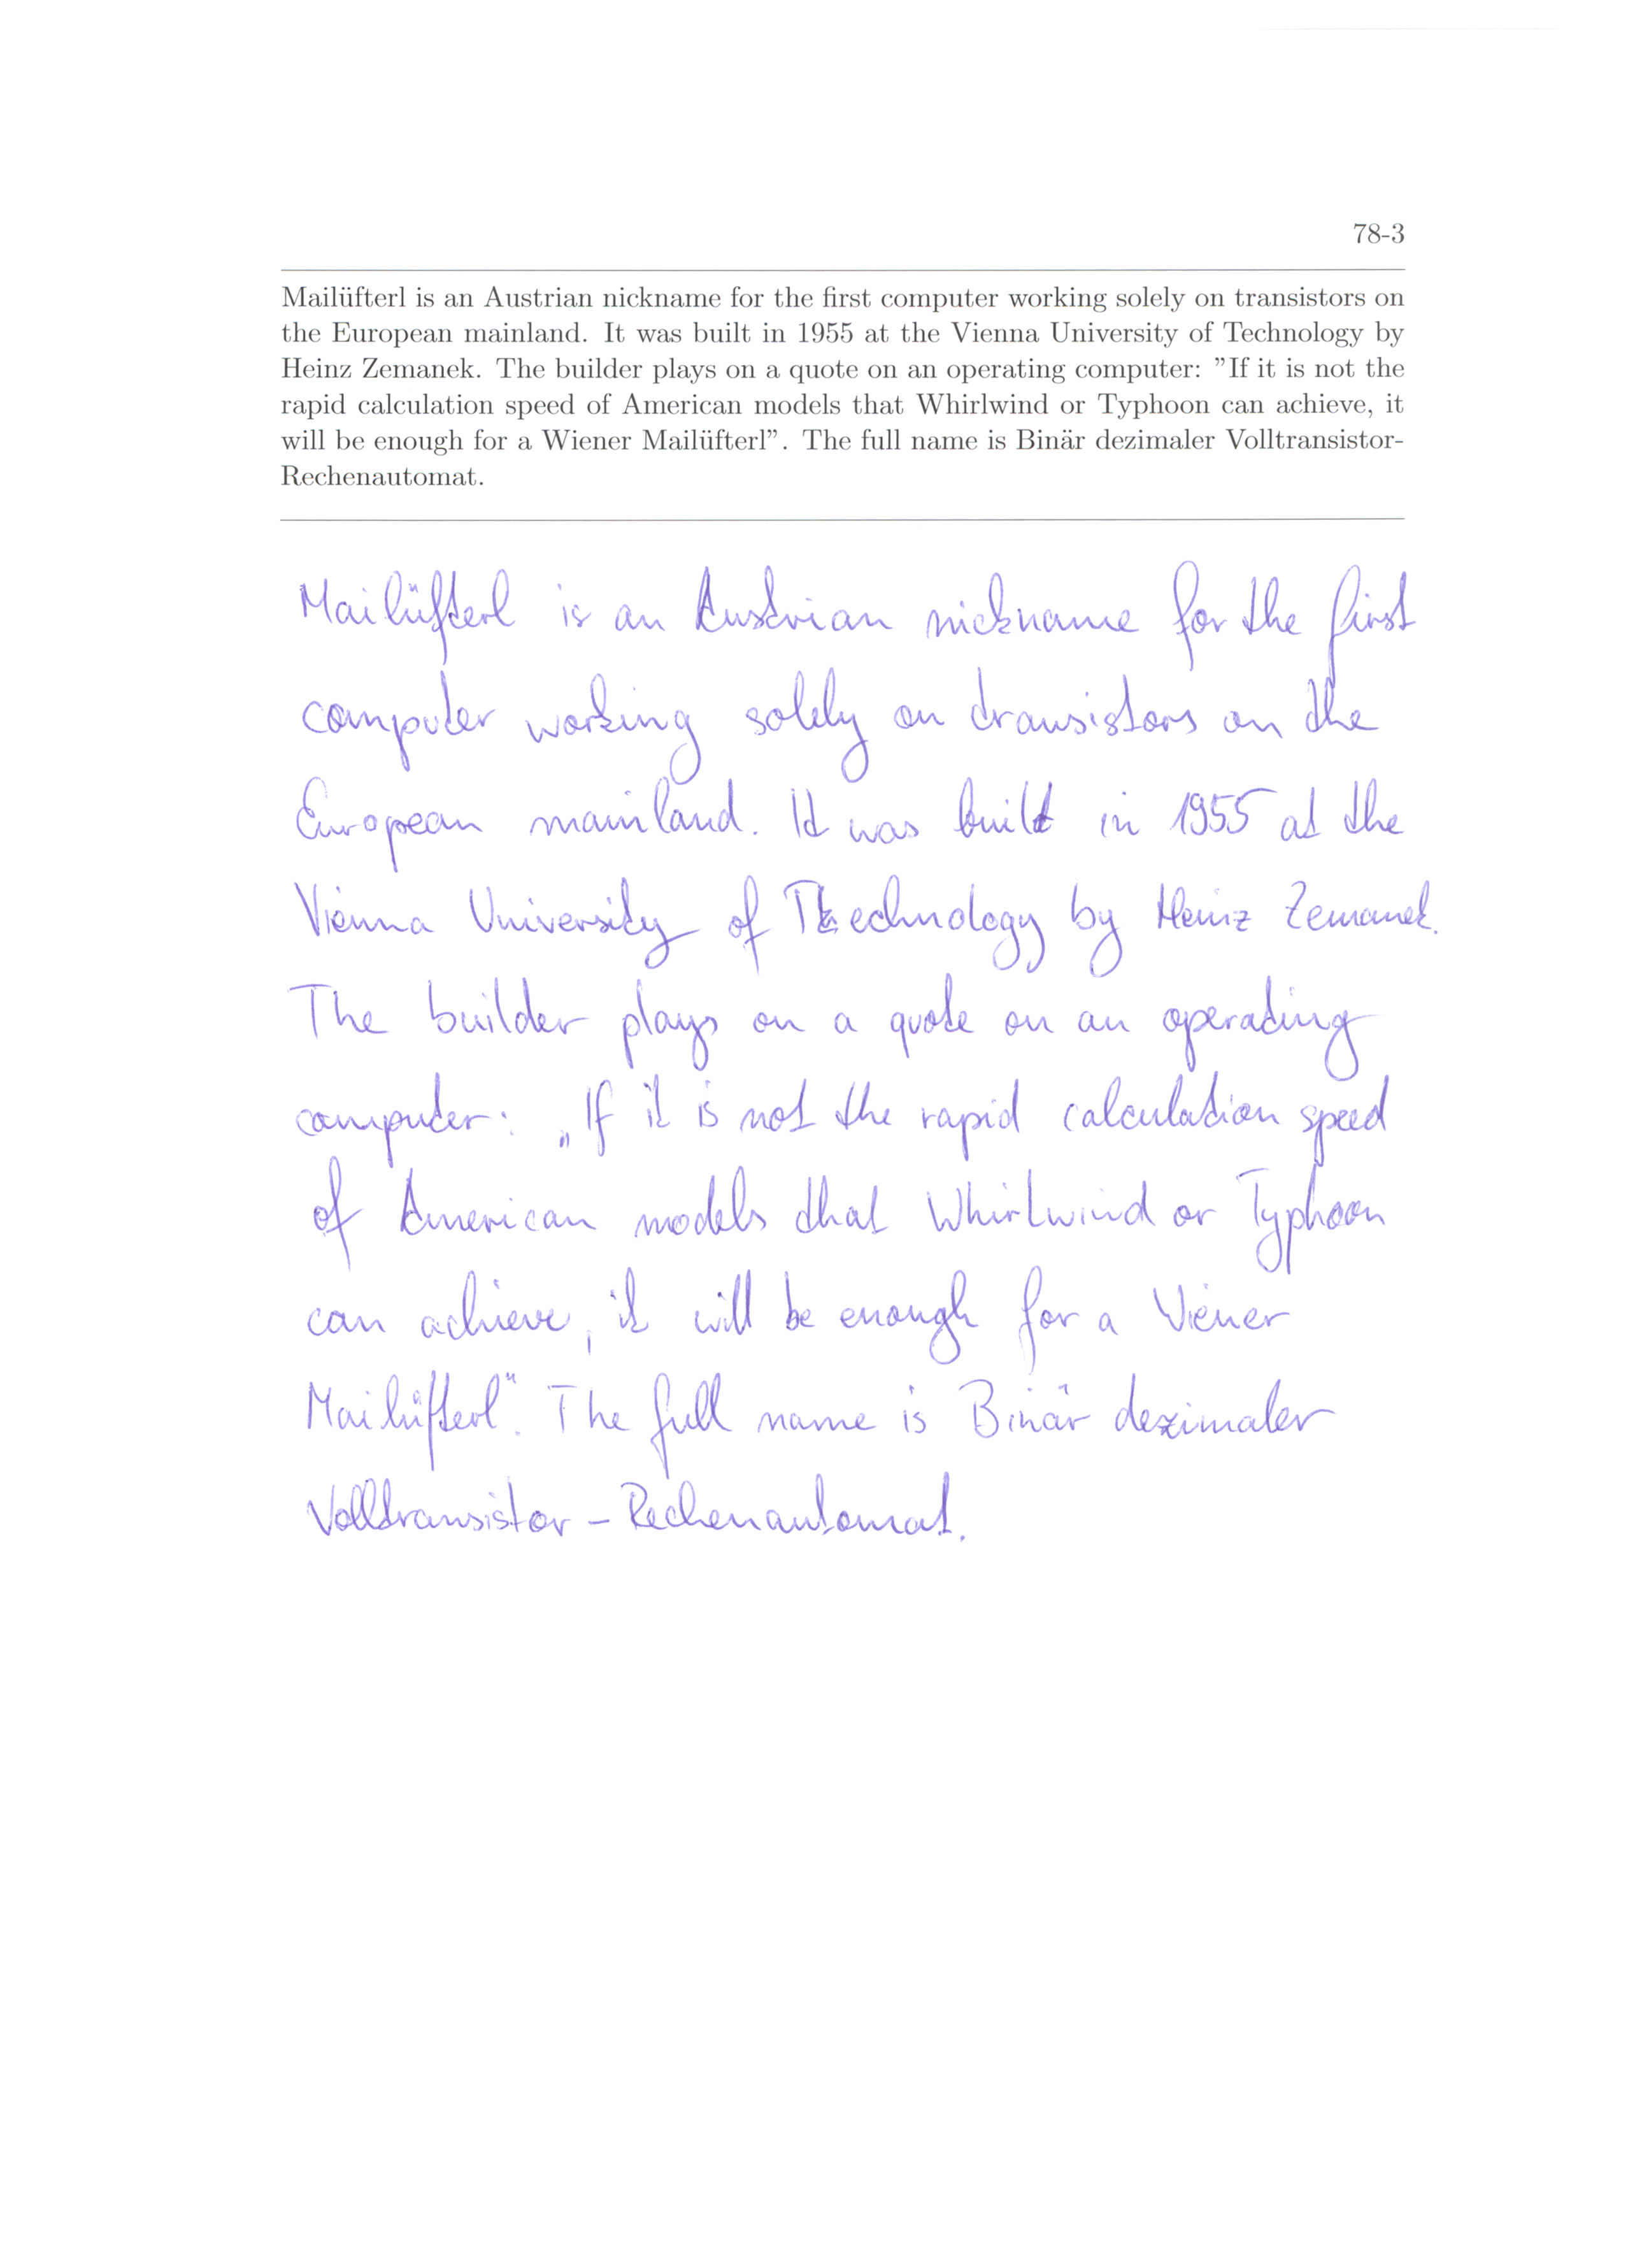 78-3
Mailüfterl is an Austrian nickname for the first computer working solely on transistors on
the European mainland. It was built in 1955 at the Vienna University of Technology by
Heinz Zemanek. The builder plays on a quote on an operating computer: ”If it is not the
rapid calculation speed of American models that Whirlwind or Typhoon can achieve, it
will be enough for a Wiener Mailüfterl”. The full name is Binär dezimaler Volltransistor-
Rechenautomat.
Mailüfterl is an Austrian nickname for the first
computer working solely on transistors on the
European mainland. It was built in 1955 at the
Vienna University of Technology by Heinz Zemanek.
The builder plays on a quote on an operating
computer: „If it is not the rapid calculation speed
of American models that Whirlwind or Typhoon
can achieve, it will be enough for a Wiener
Mailüfterl“. The full name is Binär dezimaler
Volltransistor - Rechenautomat.